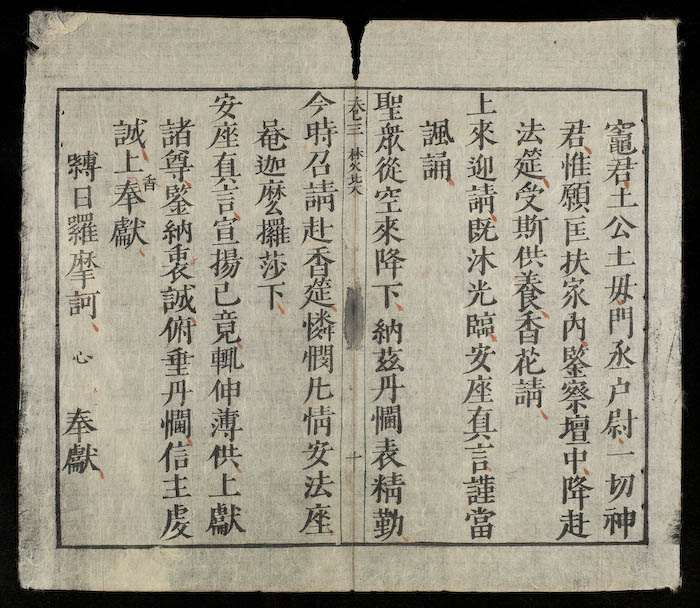 竈君土公土毋門丞户尉一切神
君惟願匡扶家内鍳察壇中降赴
法筵受斯供養香花請
上來迎請既沐光臨安座真言謹當
諷誦
聖衆從空來降下納兹丹悃表精勤
卷三
今時召請赴香筵憐憫凡情安法座
唵迦麽攞莎下
安座真言宣揚已竟輒伸薄供上獻
諸尊鍳納衷誠俯垂丹悃信主虔
誠上香奉獻
縛日羅摩訶 心 奉獻